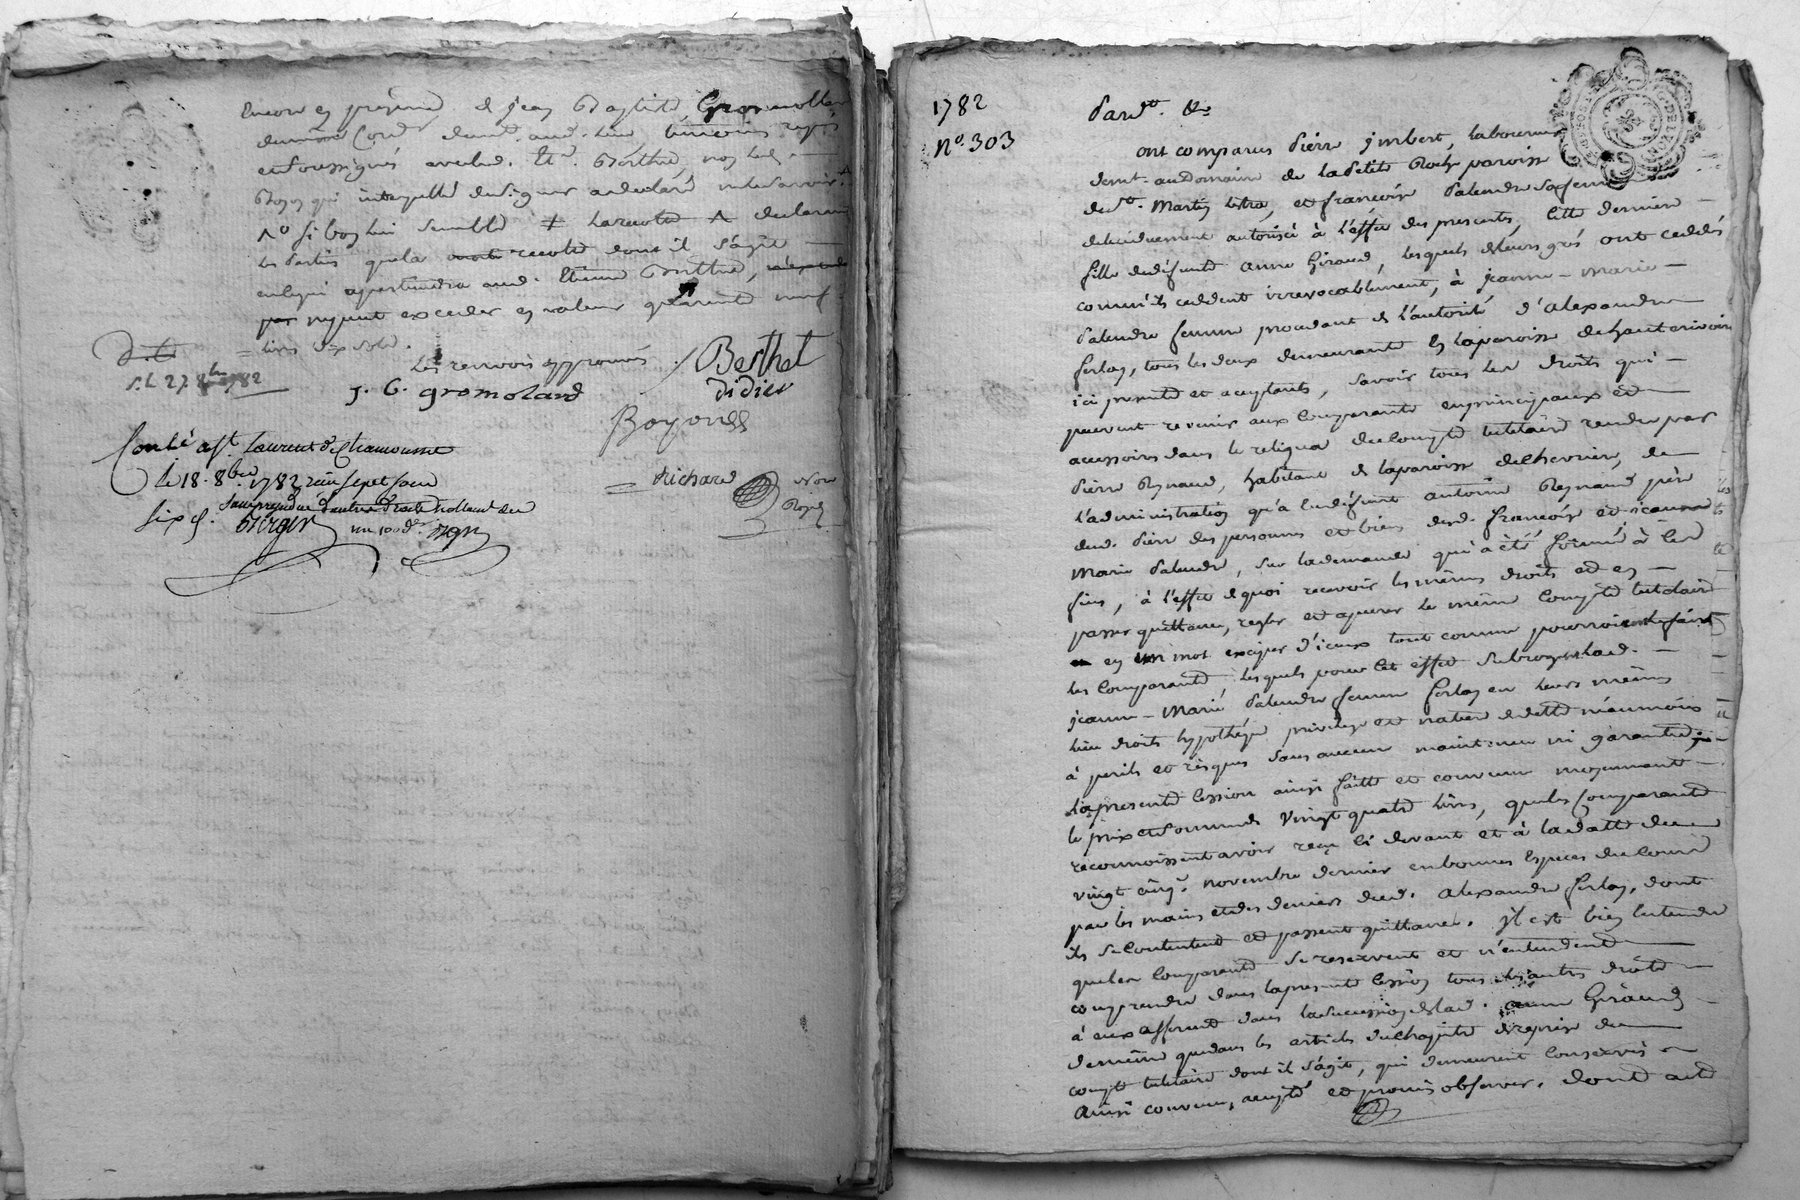 encore en présence de jean Baptiste Gromollard
demeurant
et soussignés avec led. Et. Berthet, non led.
Boyon qui interpellé de signer a declaré ne le savoir
si bon lui semble + la recolte
les parties que la recolte dont il s'agit
appartiendra aud. Etienne Berthet,
pas exceder en valeur quarente neuf
livres dix sols.
Les renvois approuvés
Berthet
J. C. gromolard
Didier
d. 27. 8bre 1782
Boyoness
Conlé à St. Laurent de Chamousset
Richard Nore
le 18. 8bre 1782 reçu sept sous
Royal
six d.
Berger
1782
No. 303
Pard.t &c
ont comparus Pierre jmbert, laboureur
demt. au Domaine de la Petite Roche paroisse
de St. Martin Lestra, et françoise Palandre sa femme
de lui duement autorisée à l'effet des presentes, cette derniere
fille de défunte anne Giraud, lesquels de leurs gré ont ceddés
comm'ils ceddent irrevocablement, à jeanne-Marie
Palandre femme procedant de l'autorité d'alexandre
ferlay, tous les deux demeurants en la paroisse de hauterivoire
ici presents et acceptants, savoir tous les droits qui
peuvent revenir aux comparants en principaux et
accessoires dans le reliqua du compte tutelaire rendu par
Pierre Reynaud, habitant de la paroisse de chevrieres, de
l'administration qu'a eu défunt antoine Reynaud père
dud. Pierre des personnes et biens desd. françoise et jeanne
Marie Palandre, sur la demande qui a été formée à ces
fins, à l'effet de quoi recevoir les mêmes droits et en
passer quittance, regler et apurer le même compte tutelaire
en un mot exciper d'iceux tout comme pourroient le faire
les comparants lesquels pour cet effet subrogent lad.
jeanne-Marie Palandre femme ferlay en leurs mêmes
lieu droits hypothéque privilege et nature de dette néanmoins
à perils et risques sans aucune maintenue ni garantie
la presente cession ainsi faitte et convenue moyennant
le prix et somme de vingt quatre livres, que les comparants
reconnoissent avoir reçu ci devant et à la datte du
vingt cinq novembre dernier en bonnes especes du cours
par les mains et des deniers dud. alexandre ferlay, dont
ils se contentent et passent quittance. jl est bien entendu
que les comparants se reservent et n'entendent
comprendre dans la presente cession tous les autres droits
à eux afferents dans la succession de lad. anne Giraud
de même que dans les articles du chapitre de reprise du
compte tutelaire dont il s'agit, qui demeurent conservés
ainsi convenu, accepté et promis observer. dont acte